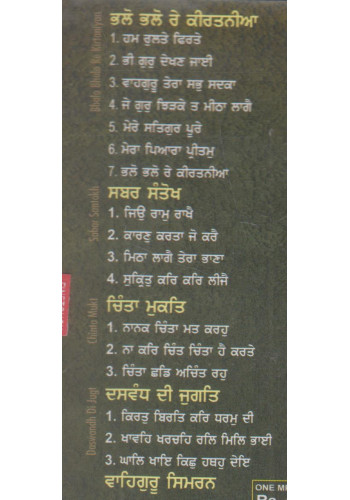 ਭਲੋ ਭਲੋ ਰੇ ਕੀਰਤਨੀਆ
1. ਹਮ ਰੁਲਤੇ ਫਿਰਤੇ
2. ਭੀ ਗੁਰੁ ਦੇਖਣ ਜਾਈ
3. ਵਾਹਗੁਰੂ ਤੇਰਾ ਸਭੁ ਸਦਕਾ
4. ਜੇ ਗੁਰੁ ਝਿੜਕੇ ਤ ਮੀਠਾ ਲਾਗੈ
5. ਮੇਰੇ ਸਤਿਗੁਰ ਪੂਰੇ
6. ਮੇਰਾ ਪਿਆਰਾ ਪ੍ਰੀਤਮੁ
7. ਭਲੋ ਭਲੋ ਰੇ ਕੀਰਤਨੀਆ
Bhalo Bhalo Re Kirtaniyan
ਸਬਰ ਸੰਤੋਖ
1. ਜਿਉ ਰਾਮੁ ਰਾਖੈ
2. ਕਾਰਣੁ ਕਰਤਾ ਜੋ ਕਰੈ
3. ਮਿਠਾ ਲਾਗੈ ਤੇਰਾ ਭਾਣਾ
4. ਸੁਕ੍ਰਿਤੁ ਕਰਿ ਕਰਿ ਲੀਜੈ
Sabar Santokh
ਚਿੰਤਾ ਮੁਕਤਿ
1. ਨਾਨਕ ਚਿੰਤਾ ਮਤ ਕਰਹੁ
2. ਨਾ ਕਰਿ ਚਿੰਤ ਚਿੰਤਾ ਹੈ ਕਰਤੇ
3. ਚਿੰਤਾ ਛਡਿ ਅਚਿੰਤ ਰਹੁ
Chinta Mukt
ਦਸਵੰਧ ਦੀ ਜੁਗਤਿ
1. ਕਿਰਤੁ ਬਿਰਤਿ ਕਰਿ ਧਰਮੁ ਦੀ
2. ਖਾਵਹਿ ਖਰਚਹਿ ਰਲਿ ਮਿਲਿ ਭਾਈ
3. ਘਾਲਿ ਖਾਇ ਕਿਛੁ ਹਥਹੁ ਦੇਇ
Daswandh Di Jugt
ਵਾਹਿਗੁਰੂ ਸਿਮਰਨ
ONE